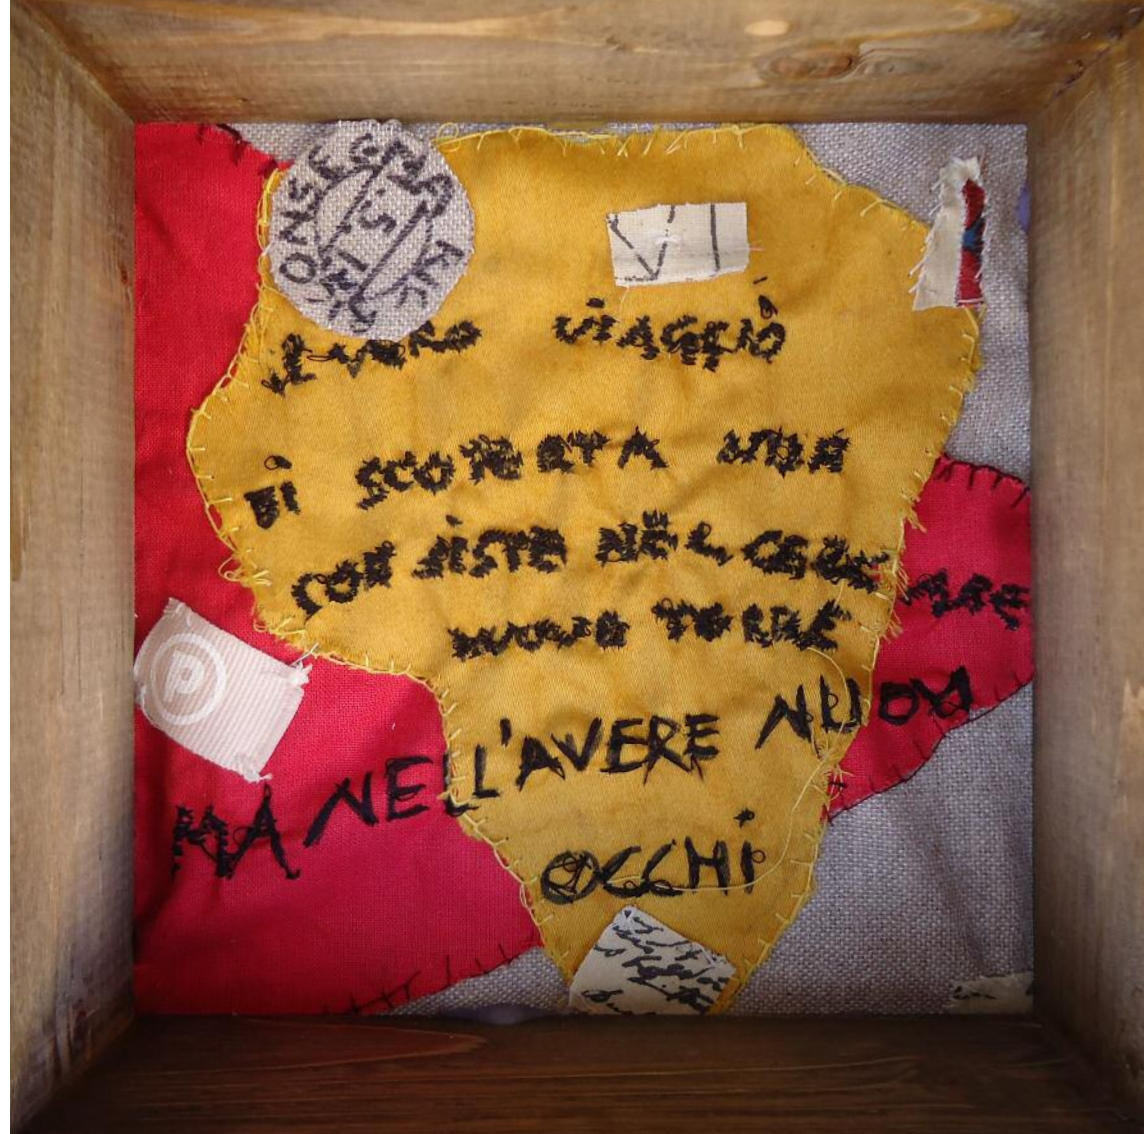 VI
IL VERO VIAGGIO
DI SCOPERTA NON
CONSISTE NEL CERCARE
NUOVE TERRE
P
MA NELL'AVERE NUOVI
OCCHI